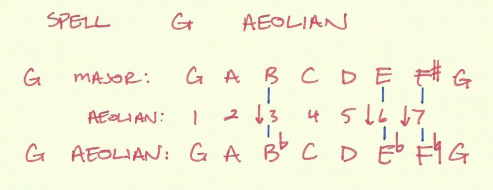 SPELL G AEOLIAN
G MAJOR: G A B C D E F# G
AEOLIAN: 1 2 ↓3 4 5 ↓6 ↓7
G AEOLIAN: G A B♭ C D E♭ F♮ G